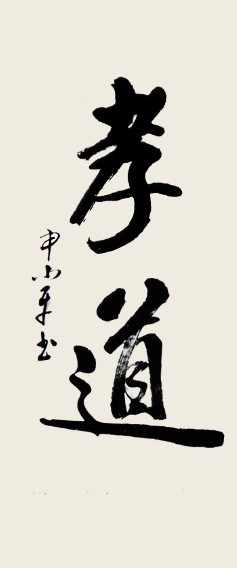 孝道
申小平书